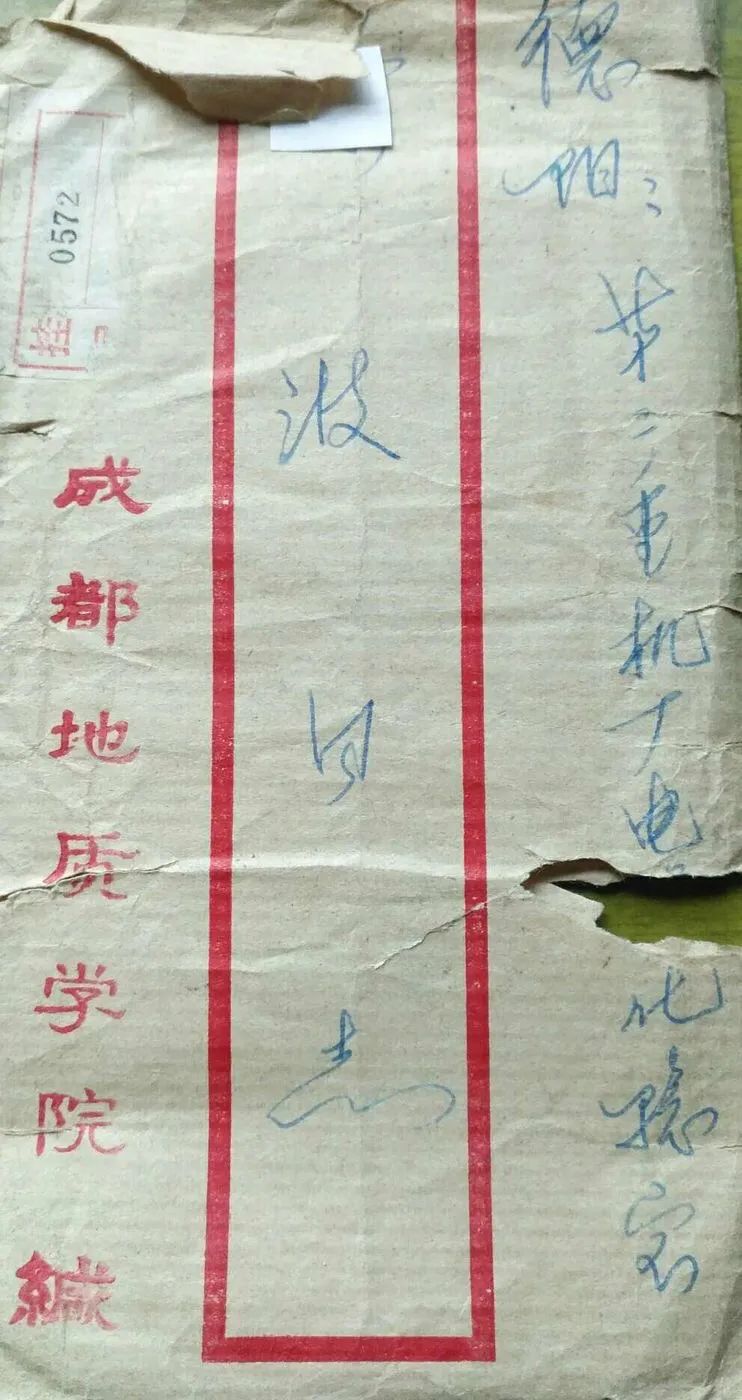 德阳：第二重机厂电
化验室
波同志
成都地质学院缄
0572
挂